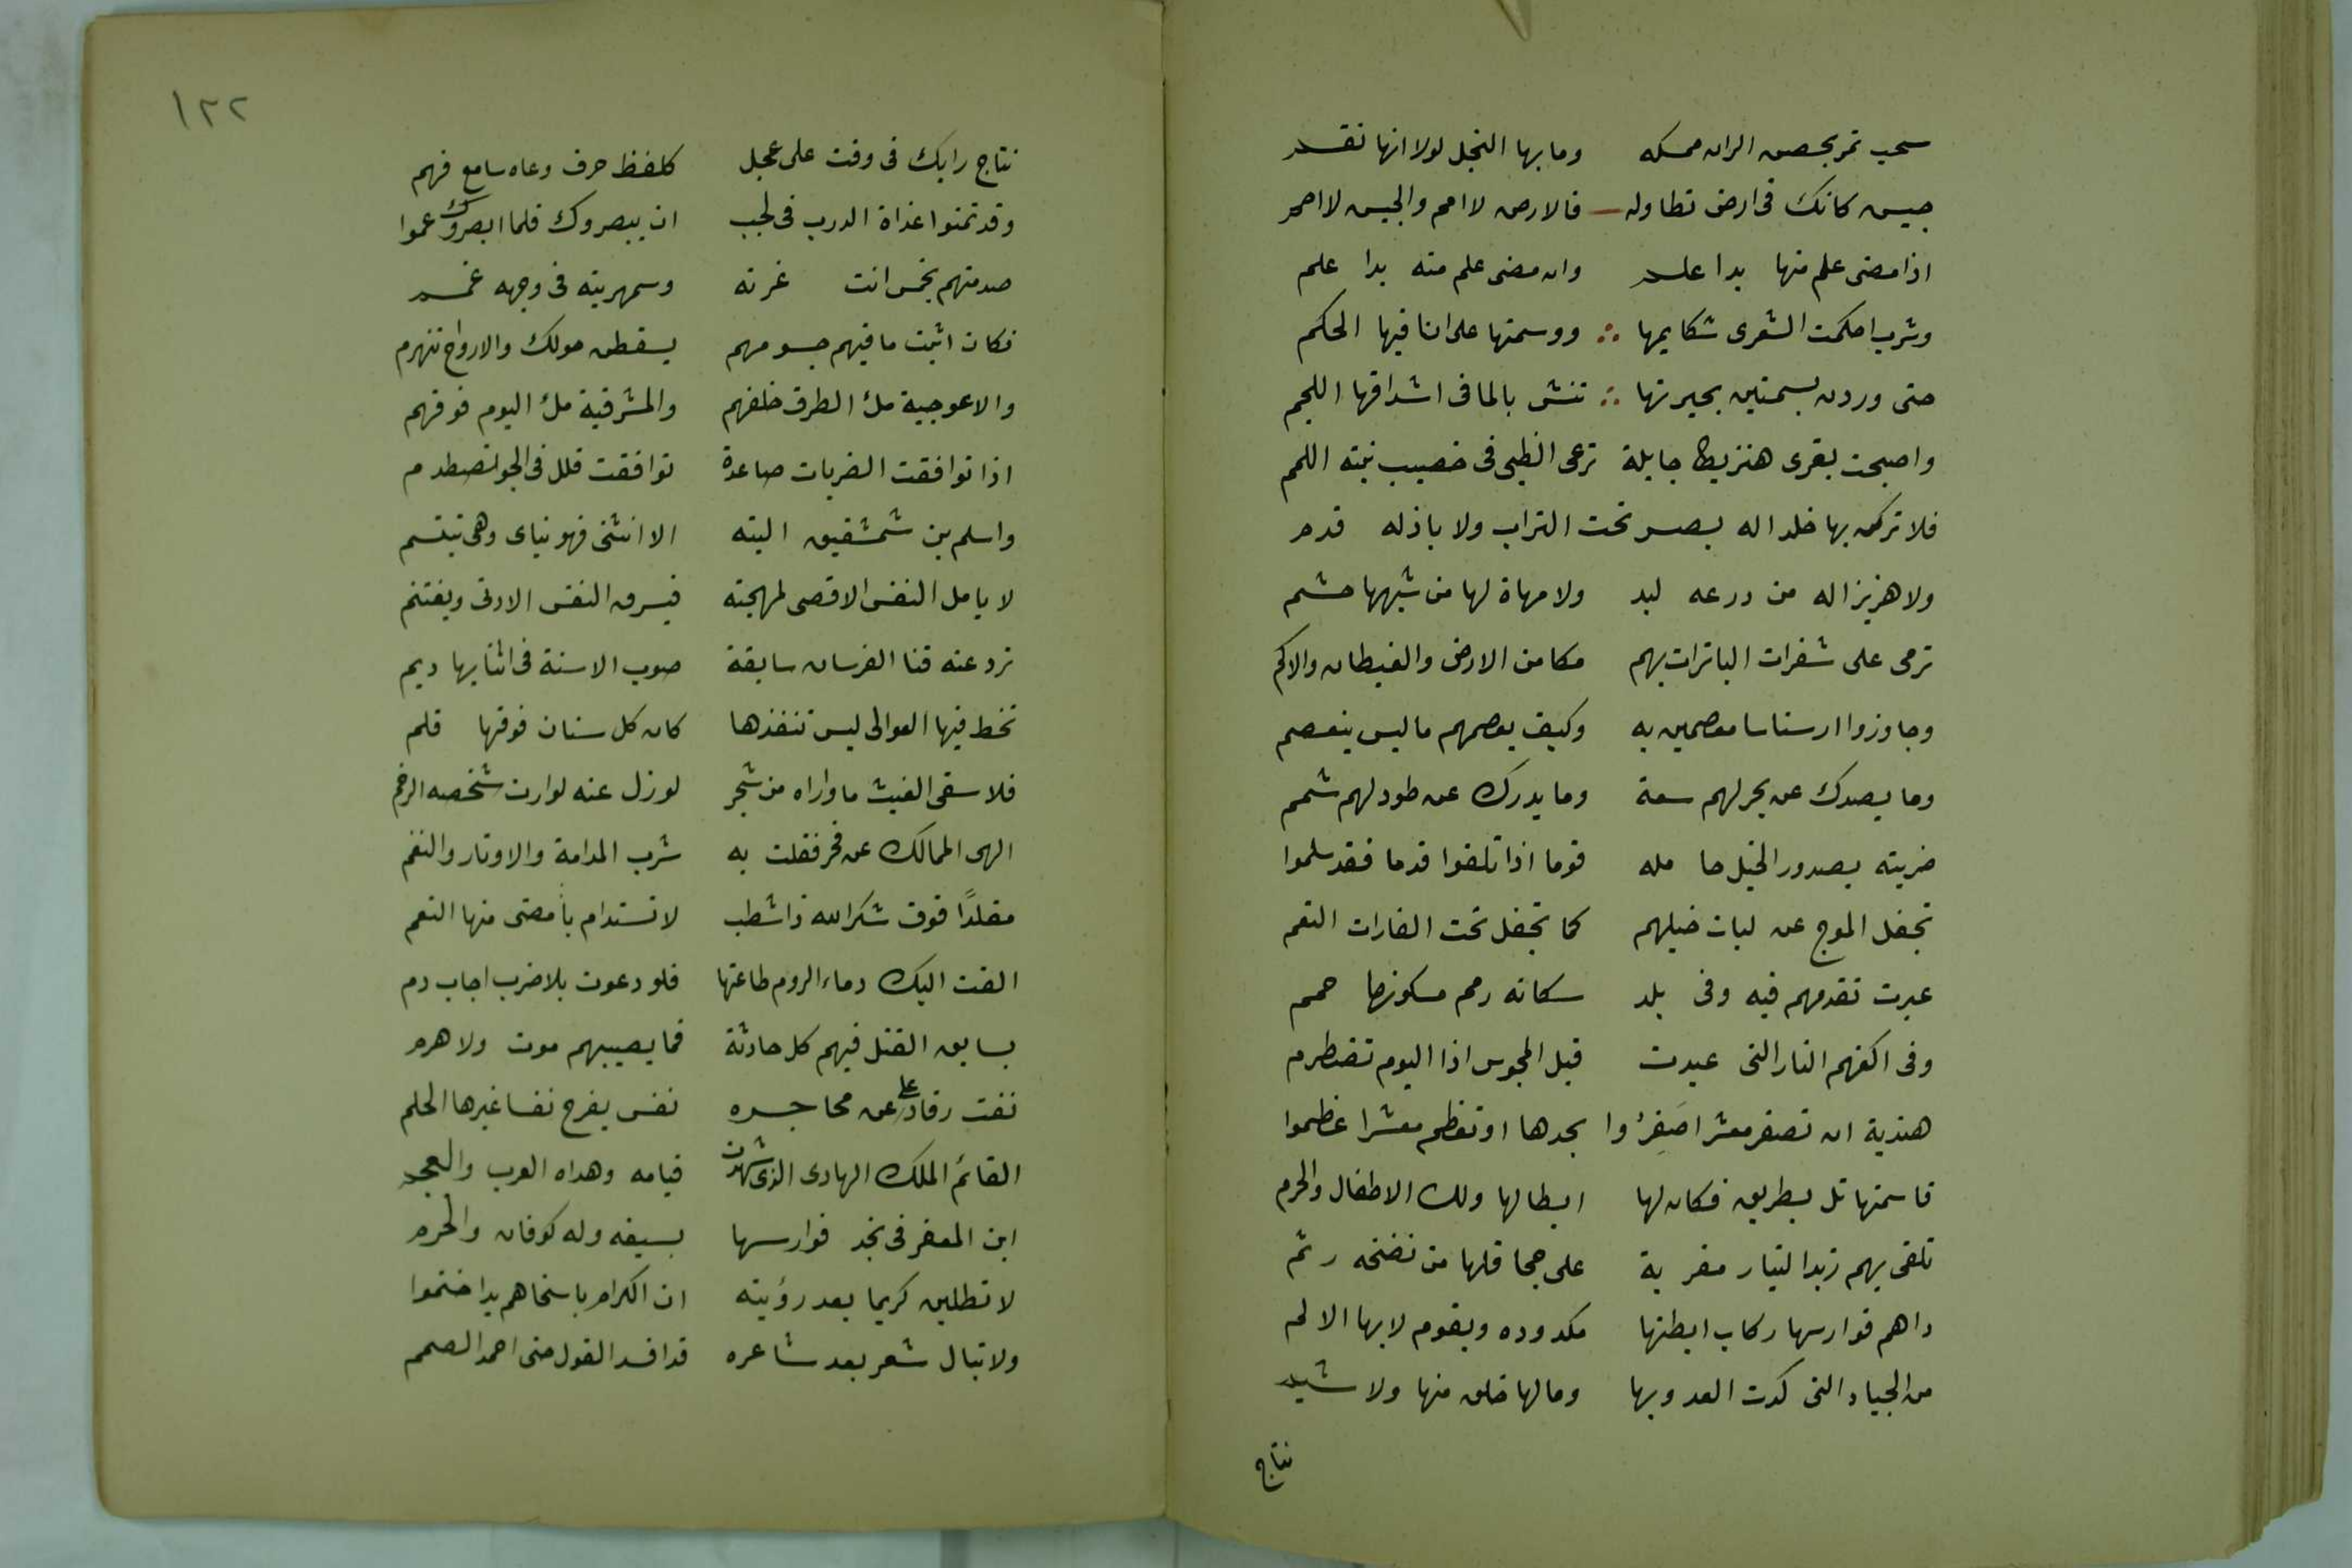 سحب تمر بحصن الران ممسكه وما بها البخل لولا انها نقم
جيش كانك فى ارض تطاوله فالارض لا امم والجيش لا امم
اذا مضى علم منها بدا علم وان مضى علم منه بدا علم
وشزب احكمت الشعرى شكايمها ووسمتها على انافيها الحكم
حتى وردن بسمنين بحيرتها تنش بالما فى اشداقها اللجم
واصبحت بقرى هنزيط جايلة ترعى الظبى فى خصيب نبته اللمم
فلا تركن بها خلدا له بصر تحت التراب ولا باذ له قدم
ولا هزبزا له من درعه لبد ولا مهاة لها من شبهها حشم
ترمى على شفرات الباترات بهم مكامن الارض والغيطان والاكم
وجاوزوا ارسناسا معصمين به وكيف يعصمهم ما ليس ينعصم
وما يصدك عن بحر لهم سعة وما يدرك عن طود لهم شمم
ضربته بصدور الخيل حاملة قوما اذا تلفوا قدما فقد سلموا
تجفل الموج عن لبات خيلهم كما تجفل تحت الغارات النعم
عبرت تقدمهم فيه وفى بلد سكانه رمم مسكونها حمم
وفى اكفهم النار التى عبدت قبل المجوس اذا اليوم تضطرم
هندية ان تصغر معشرا صَغِرُوا بحدها او تعظم معشرا عظموا
قاسمتها تل بطريق فكان لها ابطالها ولك الاطفال والحرم
تلقى بهم زبد التيار مقربة على جحافلها من نضحه رثم
داهم فوارسها ركاب ابطنها مكدوده وبقوم لا بها الالم
من الجياد التى كدت العدو بها وما لها خلق منها ولا شيم
نتاج
١٢٢
نتاج رايك فى وقت على عجل كلفظ حرف وعاه سامع فهم
وقد تمنوا غداة الدرب فى لجب ان يبصروك فلما ابصروك عموا
صدمتهم بخمس انت غرته وسمهريته فى وجهه غمم
فكان اثبت ما فيهم جسومهم يسقطن حولك والارواح تنهزم
والاعوجية ملْ الطرق خلفهم والمشرفية ملْ اليوم فوقهم
اذا توافقت الضربات صاعدة توافقت قلل فى الجو تصطدم
واسلم بن شمشقيق اليته الا انثنى فهو نياى وهى تبتسم
لا يامل النفس الاقصى لمهجته فيسرق النفس الادنى ويغتنم
ترد عنه قنا الفرسان سابقة صوب الاسنة فى اثنايها ديم
تخط فيها العوالى ليس تنفذها كان كل سنان فوقها قلم
فلا سقى الغيث ما واراه من شجر لو زل عنه لوارت شخصه الرخم
الهى الممالك عن فخر فقلت به شرب المدامة والاوتار والنغم
مقلدًا فوق شكر الله ذا شطب لا تستدام بأمضى منها النعم
القت اليك دماء الروم طاعتها فلو دعوت بلا ضرب اجاب دم
يسابق القتل فيهم كل حادثة فما يصيبهم موت ولا هرم
نفت رقاد على عن محاجره نفس يفرج نفسا غيرها الحلم
القائم الملك الهادى الذى شهدت قيامه وهداه العرب والعجم
ابن المعفر فى نجد فوارسها بسيفه وله كوفان والحرم
لا تطلبن كريما بعد رؤيته ان الكرام باسخاهم يدا ختموا
ولا تبال شعر بعد شاعره قد افسد القول حتى احمد الصمم